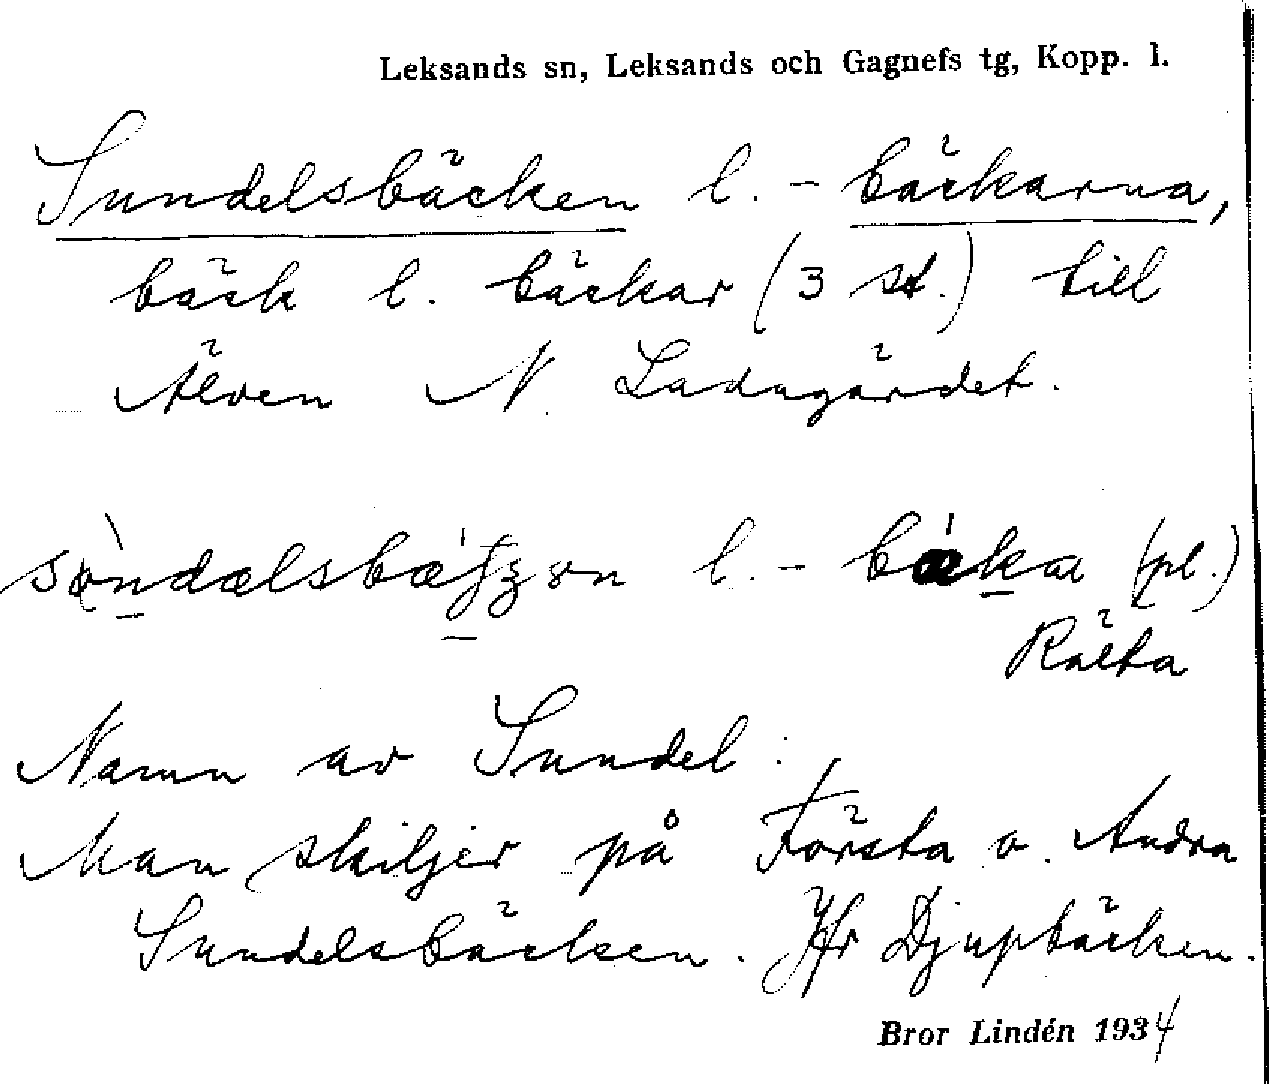 Leksands sn, Leksands och Gagnefs tg, Kopp. l.
Sundelsbäcken l. -bäckarna,
bäck l. bäckar (3 st.) till
Älven N. Ladugärdet.
l. - (pl.)
Rälta
Namn av Sundel.
Man skiljer på Första o. Andra
Sundelsbäcken. Jfr Djupbäcken.
Bror Lindén 1934